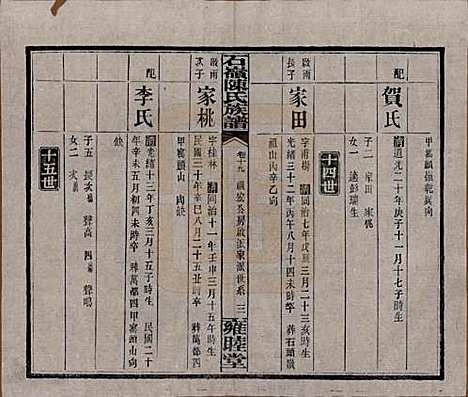 甲寓額強乾巽向
配
賀氏
清道光二十年庚子十一月十七子時生
子二 家田 家桃
女一 適彭瑞生
十四世
啟南長子
家田
字甫樹 清同治七年戊辰三月二十三亥時生
光緒三十二年丙午八月十四未時卒 葬石頭嶺
祖山丙辛乙向
石嶺陳氏族譜
卷十九
啟派家派世系
三
雍睦堂
啟南次子
家桃
字桂林 清同治十一年壬申三月十五午時生
民國三十年辛巳八月二十五丑時卒 葬萬都四
甲寓 山向缺
配
李氏
清光緒十三年丁亥三月十五子時生 民國二十
年辛未五月初四未時卒 葬萬都四甲寓頭山向
缺
十五世
子五 長 次 聲高 四 聲鳴
女二